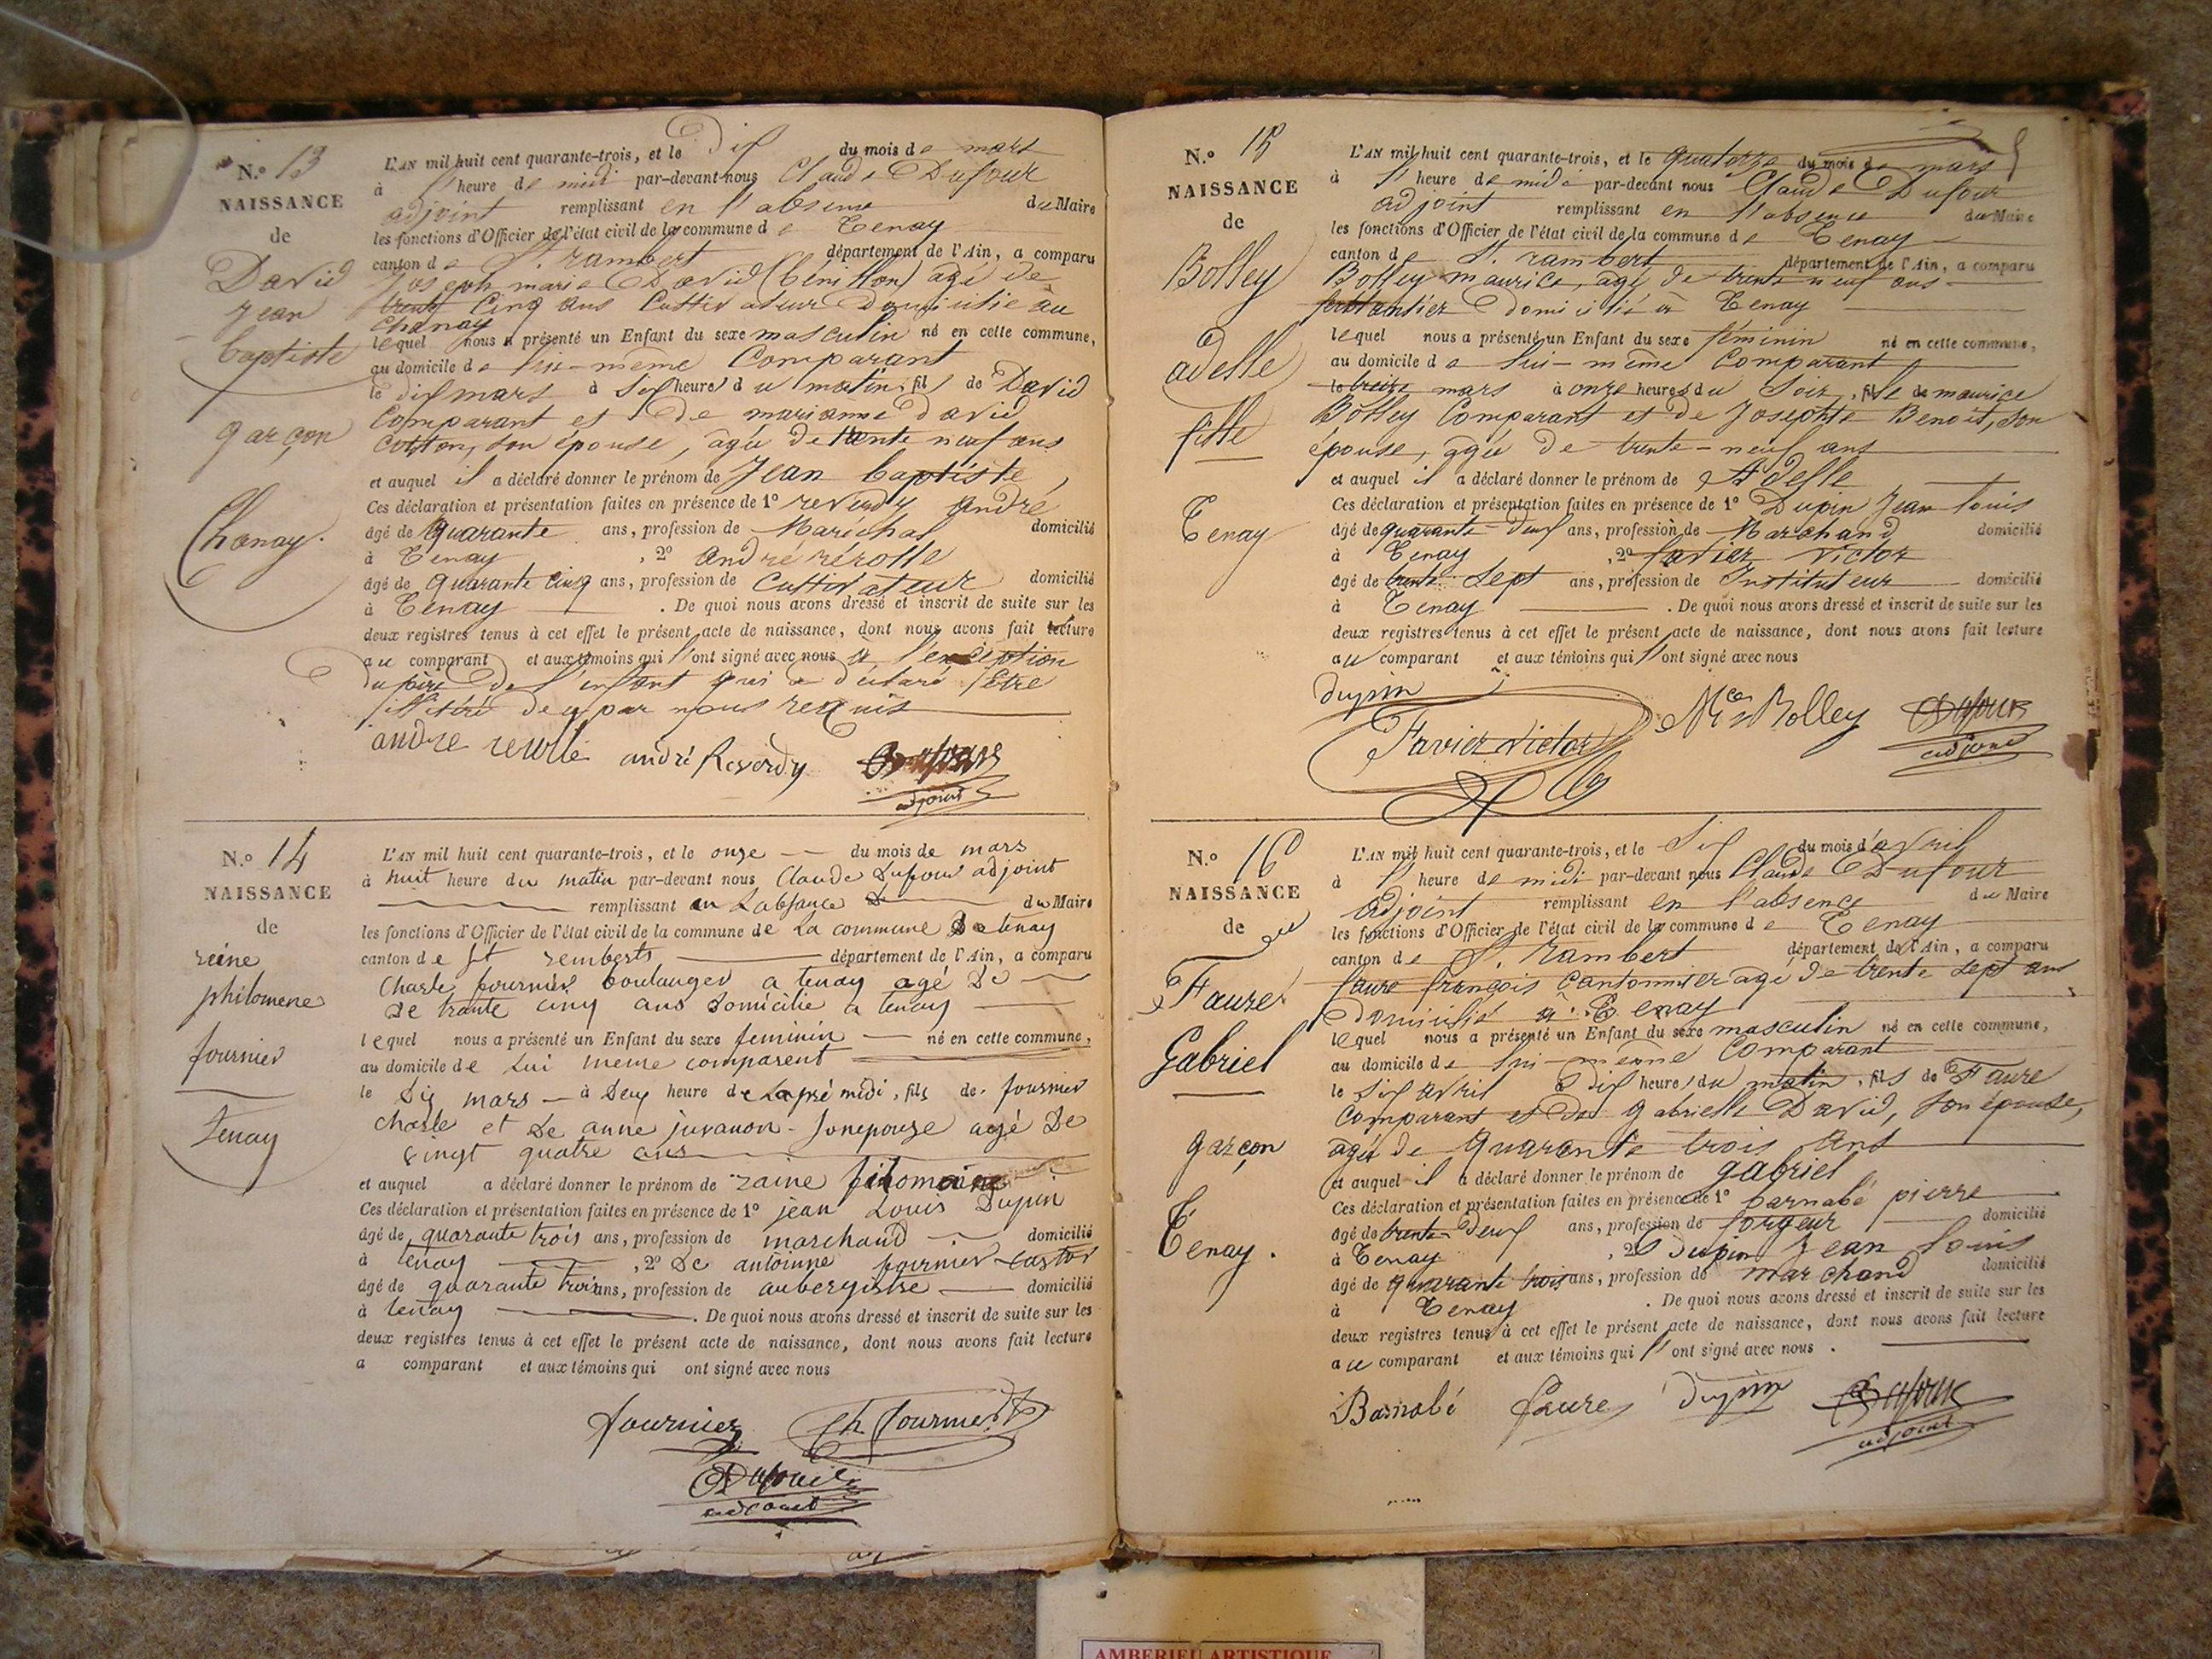 N.o 13
NAISSANCE
de
David
Jean
baptiste
garçon
Chanay.
L'AN mil huit cent quarante-trois, et le dix du mois de mars
à l'heure de midi par-devant nous Claude Dufour
adjoint remplissant en l'absence du Maire
les fonctions d'Officier de l'état civil de la commune de Tenay
canton de St. rambert département de l'Ain, a comparu
Joseph marie David agé de
trente Cinq ans Cultivateur domicilié au
Chanay
lequel nous a présenté un Enfant du sexe masculin né en cette commune,
au domicile de lui-même Comparant
le dix mars à six heures du matin, fils de David
Comparant et de marianne david
Cotton, son épouse, agée de trente neuf ans
et auquel il a déclaré donner le prénom de Jean baptiste
Ces déclaration et présentation faites en présence de 1o reverdy André
âgé de quarante ans, profession de Maréchal domicilié
à Tenay, 2o André rérolle
âgé de quarante cinq ans, profession de Cultivateur domicilié
à Tenay. De quoi nous avons dressé et inscrit de suite sur les
deux registres tenus à cet effet le présent acte de naissance, dont nous avons fait lecture
au comparant et aux témoins qui l'ont signé avec nous à l'exception
du père de l'enfant qui a déclaré être
illitéré de ce par nous requis
andré Reverdy
adjoint
N.o 14
NAISSANCE
de
reine
philomene
fournier
Tenay
L'AN mil huit cent quarante-trois, et le onze du mois de mars
à huit heure du matin par-devant nous Claude Dufour adjoint
remplissant en Labsance du Maire
les fonctions d'Officier de l'état civil de la commune de La commune De tenay
canton de st remberts département de l'Ain, a comparu
Charle fournier boulanger a tenay agé De
De trante cinq ans Domicilie a tenay
lequel nous a présenté un Enfant du sexe feminin né en cette commune,
au domicile de Lui meme comparent
le Dix mars à Deux heure de Lapré midi, fils de fournier
charle et De anne juvanon sonepouze agé De
vingt quatre ans
et auquel a déclaré donner le prénom de raine
Ces déclaration et présentation faites en présence de 1o jean Louis Dupin
âgé de quarante trois ans, profession de marchand domicilié
à tenay, 2o De antoinne fournier castor
âgé de quarante trois ans, profession de aubergistre domicilié
à tenay. De quoi nous avons dressé et inscrit de suite sur les
deux registres tenus à cet effet le présent acte de naissance, dont nous avons fait lecture
a comparant et aux témoins qui ont signé avec nous
fournier Ch fournier
Dufour
adjoint
N.o 15
NAISSANCE
de
Bolley
adelle
fille
Tenay
L'AN mil huit cent quarante-trois, et le quatorze du mois de mars
à l'heure de midi par-devant nous Claude Dufour
adjoint remplissant en l'absence du Maire
les fonctions d'Officier de l'état civil de la commune de Tenay
canton de St. rambert département de l'Ain, a comparu
Bolley maurice, agé de trente neuf ans
domicilié à Tenay
lequel nous a présenté un Enfant du sexe féminin né en cette commune,
au domicile de lui-même Comparant
le treize mars à onze heures du soir, fille de maurice
Bolley Comparant et de Josephte Benoit, son
épouse, agée de trente-neuf ans
et auquel il a déclaré donner le prénom de Adelle
Ces déclaration et présentation faites en présence de 1o Dupin Jean louis
âgé de quarante-deux ans, profession de Marchand domicilié
à Tenay, 2o favier Victor
âgé de trente sept ans, profession de Instituteur domicilié
à Tenay. De quoi nous avons dressé et inscrit de suite sur les
deux registres tenus à cet effet le présent acte de naissance, dont nous avons fait lecture
au comparant et aux témoins qui l'ont signé avec nous
dupin Mce Bolley Dufour
Favier Victor adjoint
N.o 16
NAISSANCE
de
Faure
Gabriel
garçon
Tenay.
L'AN mil huit cent quarante-trois, et le Six du mois d'avril
à l'heure de midi par-devant nous Claude Dufour
Adjoint remplissant en l'absence du Maire
les fonctions d'Officier de l'état civil de la commune de Tenay
canton de St. Rambert département de l'Ain, a comparu
faure françois Cantonnier agé de trente sept ans
domicilié à Tenay
lequel nous a présenté un Enfant du sexe masculin né en cette commune,
au domicile de lui-même Comparant
le Six avril à dix heures du matin, fils de Faure
Comparant et de gabrielle David, son épouse,
agée de quarante trois ans
et auquel il a déclaré donner le prénom de gabriel
Ces déclaration et présentation faites en présence de 1o barnabé pierre
âgé de trente-deux ans, profession de forgeur domicilié
à Tenay, 2o dupin Jean louis
âgé de quarante trois ans, profession de marchand domicilié
à Tenay. De quoi nous avons dressé et inscrit de suite sur les
deux registres tenus à cet effet le présent acte de naissance, dont nous avons fait lecture
au comparant et aux témoins qui l'ont signé avec nous.
Barnabé faure dupin Dufour
adjoint
AMBERIEU ARTISTIQUE